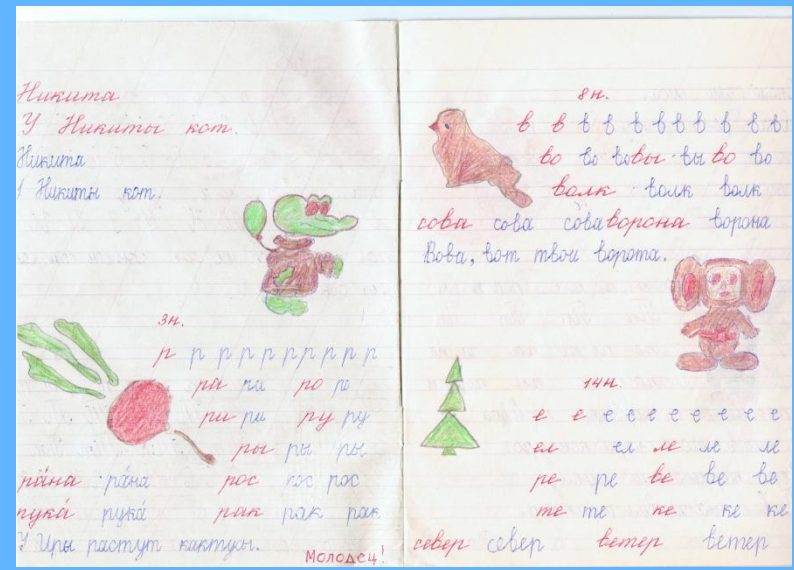 Никита
У Никиты кот.
Никита
У Никиты кот
3н.
р р р р р р р р р р
ра ра ро ро
ри ри ру ру
ры ры ры
ра́на ра́на рос рос рос
рука́ рука́ рак рак рак
У Иры растут кактусы.
Молодец!
8н.
в в в в в в в в в в в
во во во вы вы во во
волк волк волк
сова сова сова ворона ворона
Вова, вот твои ворота.
14н.
е е е е е е е е е
ел ел ле ле ле
ре ре ве ве ве
те те ке ке ке
север север ветер ветер